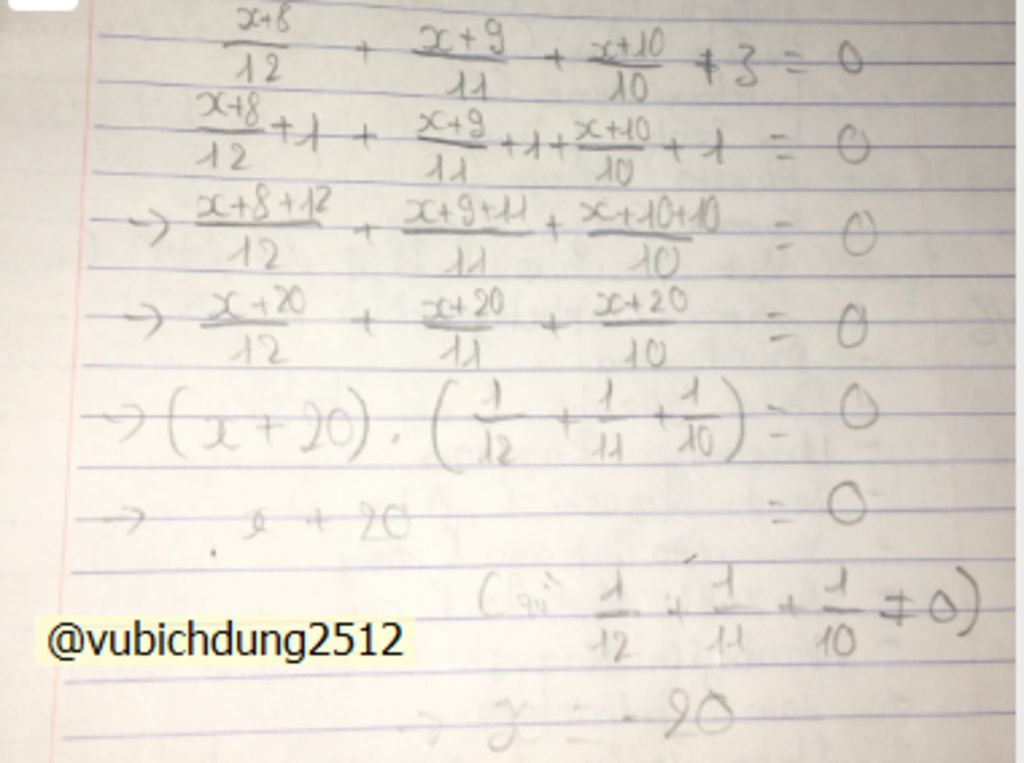 x+8/12 + x+9/11 + x+10/10 + 3 = 0
x+8/12 + 1 + x+9/11 + 1 + x+10/10 + 1 = 0
→ x+8+12/12 + x+9+11/11 + x+10+10/10 = 0
→ x+20/12 + x+20/11 + x+20/10 = 0
→ (x + 20) . (1/12 + 1/11 + 1/10) = 0
→ x + 20 = 0
( 1/12 + 1/11 + 1/10 ≠ 0)
@vubichdung2512
→ x = -20